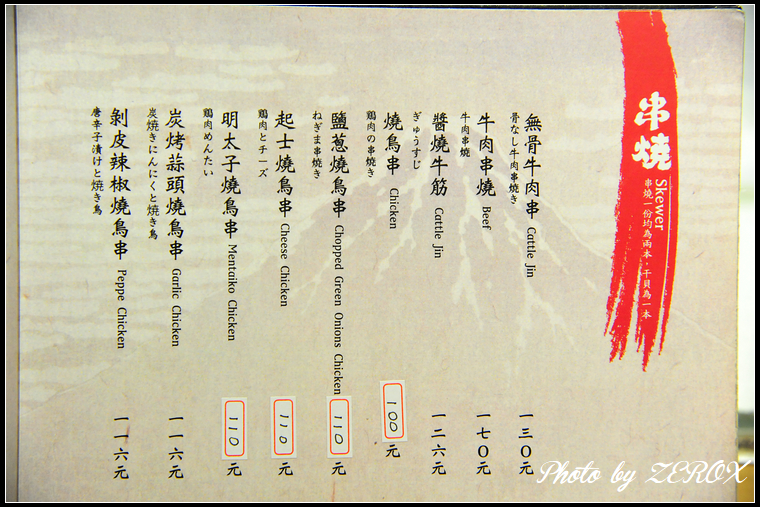 串燒
Skewer
串燒一份均為兩本．干貝為一本
無骨牛肉串 Cattle Jin 一三０元
骨なし牛肉串焼き
牛肉串燒 Beef 一七０元
牛肉串焼
醬燒牛筋 Cattle Jin 一二六元
ぎゅうすじ
燒鳥串 Chicken 100元
鶏肉の串焼き
鹽蔥燒鳥串 Chopped Green Onions Chicken 110元
ねぎま串焼き
起士燒鳥串 Cheese Chicken 110元
鶏肉とチーズ
明太子燒鳥串 Mentaiko Chicken 110元
鶏肉めんたい
炭烤蒜頭燒鳥串 Garlic Chicken 一一六元
炭焼きにんにくと焼き鳥
剝皮辣椒燒鳥串 Peppe Chicken 一一六元
唐辛子漬けと焼き鳥
Photo by ZEROX